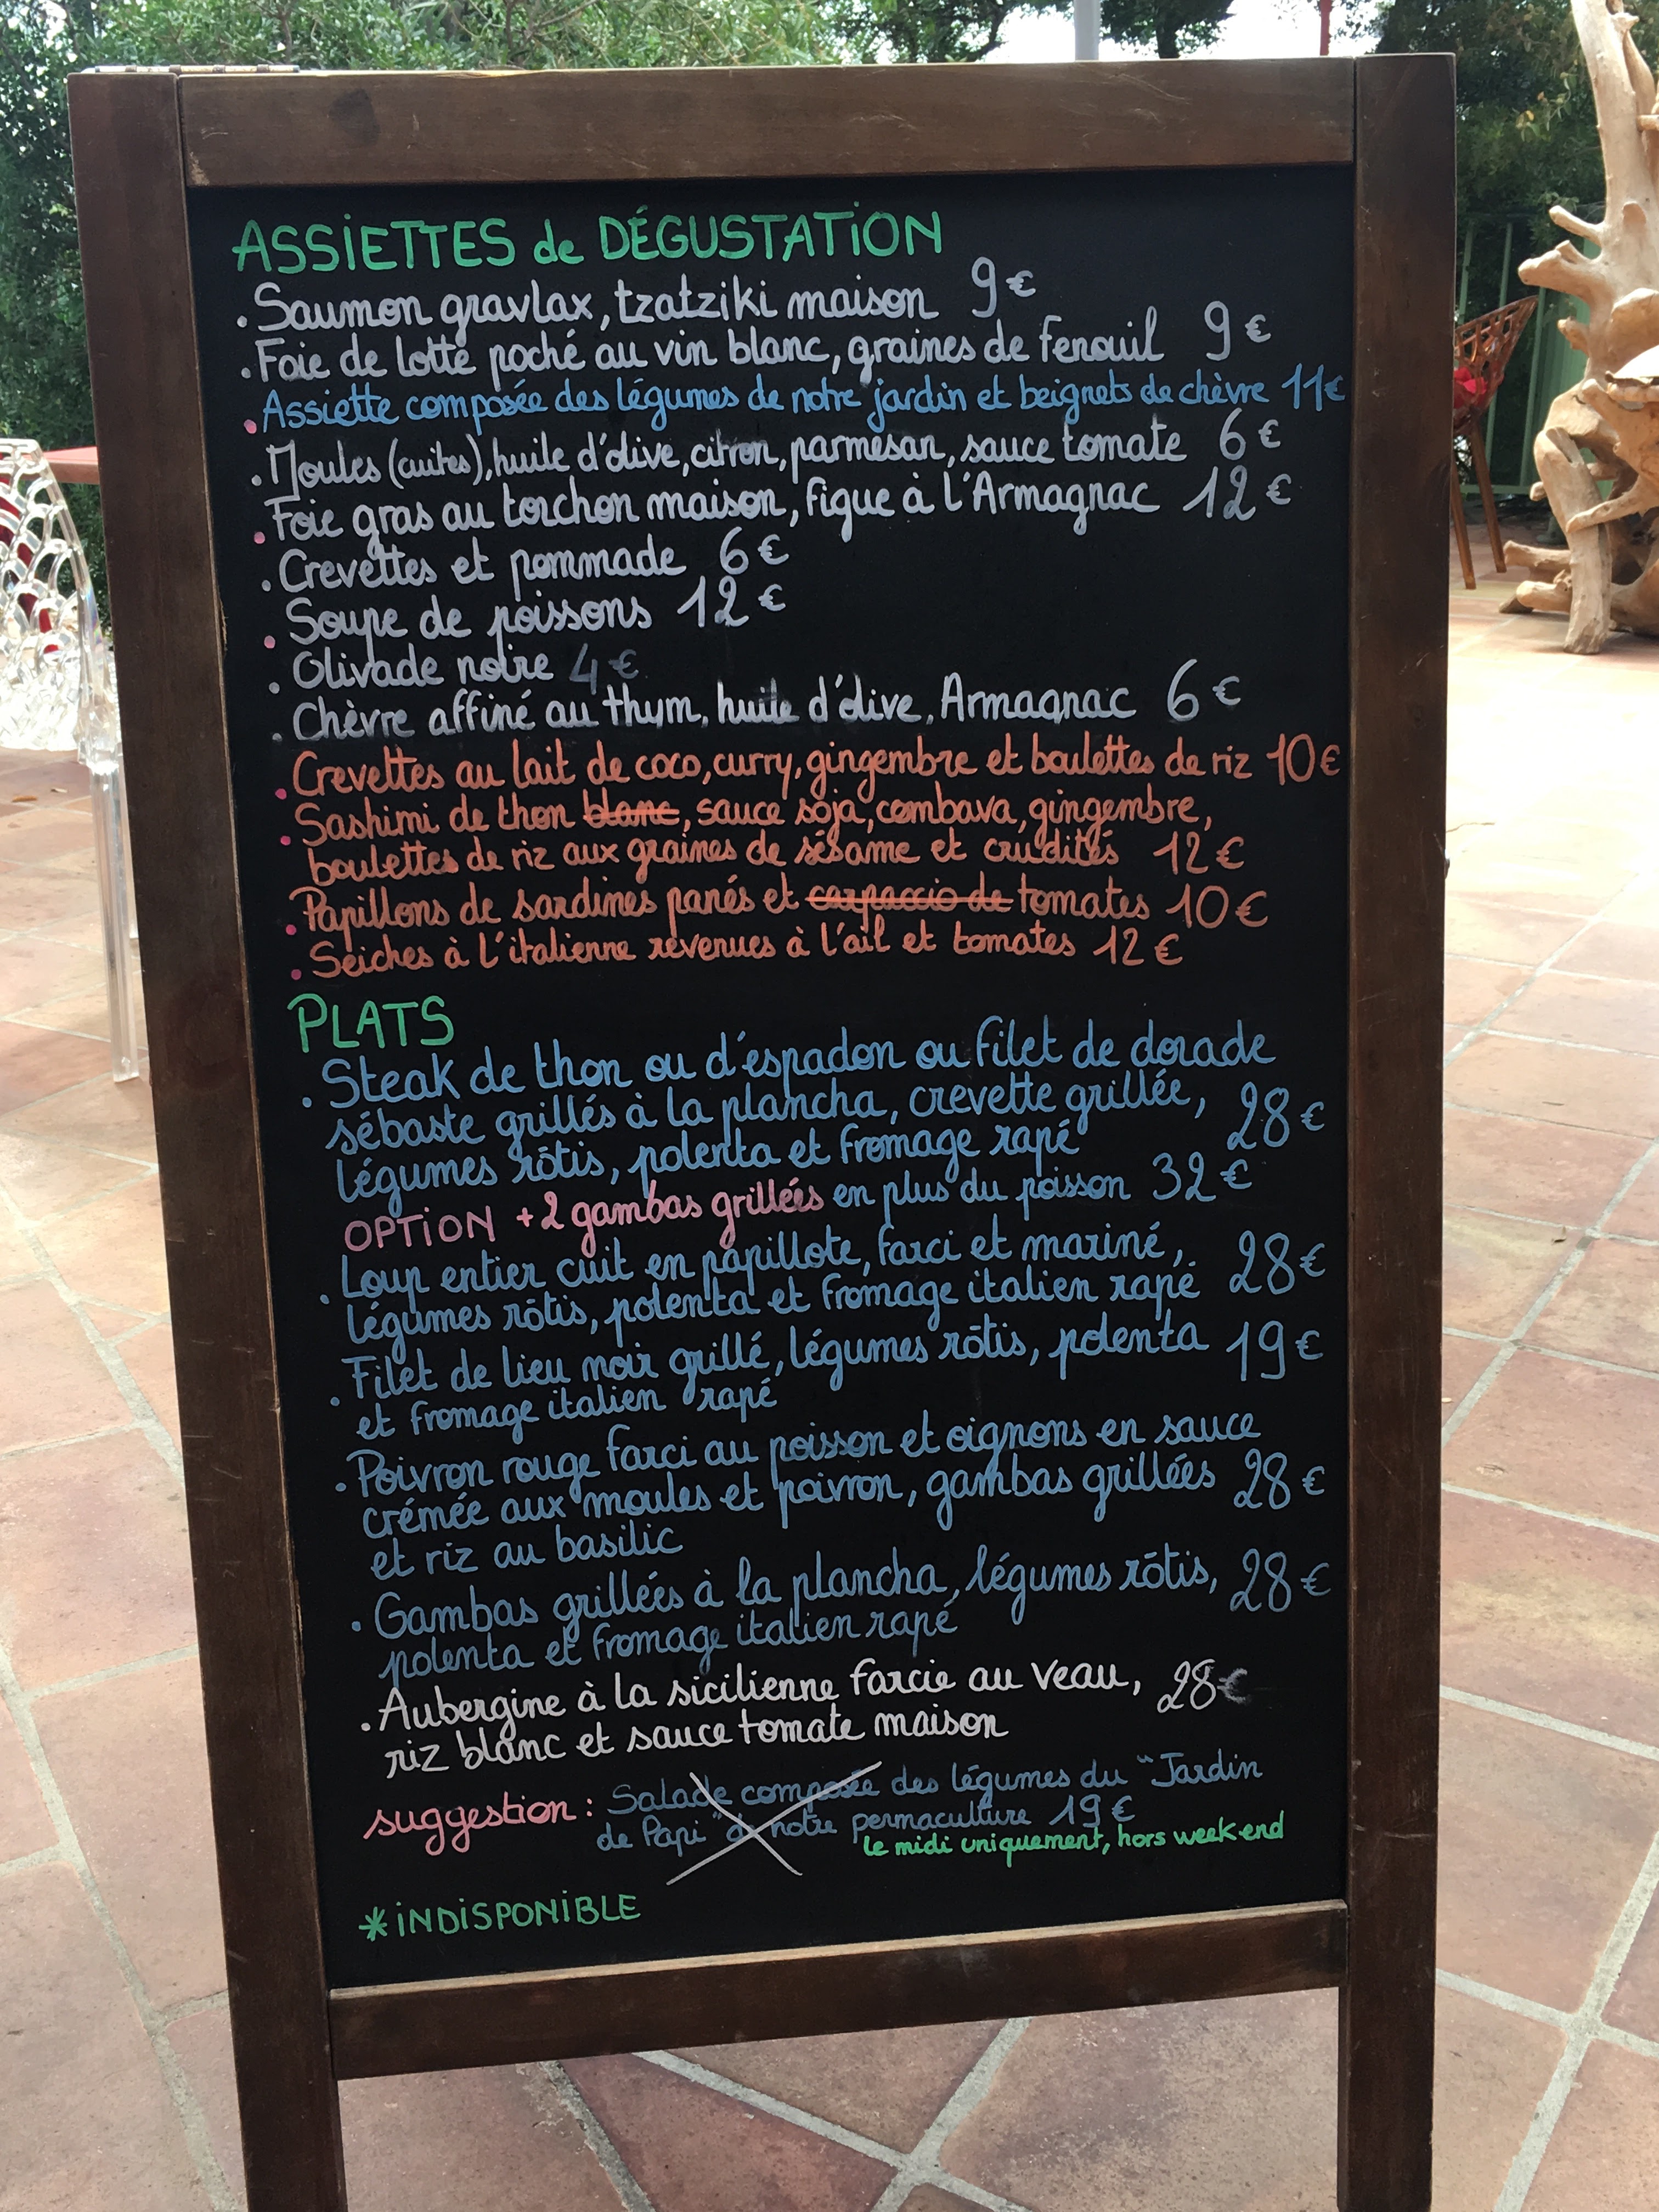 ASSIETTES de DÉGUSTATION
. Saumon gravlax, tzatziki maison 9€
. Foie de lotte poché au vin blanc, graines de fenouil 9€
. Assiette composée des légumes de notre jardin et beignets de chèvre 11€
. Moules (cuites), huile d'olive, citron, parmesan, sauce tomate 6€
. Foie gras au torchon maison, figue à l'Armagnac 12€
. Crevettes et pommade 6€
. Soupe de poissons 12€
. Olivade noire 4€
. Chèvre affiné au thym, huile d'olive, Armagnac 6€
. Crevettes au lait de coco, curry, gingembre et boulettes de riz 10€
. Sashimi de thon blanc, sauce soja, combava, gingembre,
boulettes de riz aux graines de sésame et crudités 12€
. Papillons de sardines panés et carpaccio de tomates 10€
. Seiches à l'italienne revenues à l'ail et tomates 12€
PLATS
. Steak de thon ou d'espadon ou filet de dorade
sébaste grillés à la plancha, crevette grillée, 28€
légumes rôtis, polenta et fromage rapé
OPTION +2 gambas grillées en plus du poisson 32€
. Loup entier cuit en papillote, farci et mariné, 28€
légumes rôtis, polenta et fromage italien rapé
. Filet de lieu noir grillé, légumes rôtis, polenta 19€
et fromage italien rapé
. Poivron rouge farci au poisson et oignons en sauce
crémée aux moules et poivron, gambas grillées 28€
et riz au basilic
. Gambas grillées à la plancha, légumes rôtis, 28€
polenta et fromage italien rapé
. Aubergine à la sicilienne farcie au veau, 28€
riz blanc et sauce tomate maison
suggestion : Salade composée des légumes du "Jardin
de Papi" de notre permaculture 19€
le midi uniquement, hors week-end
*INDISPONIBLE